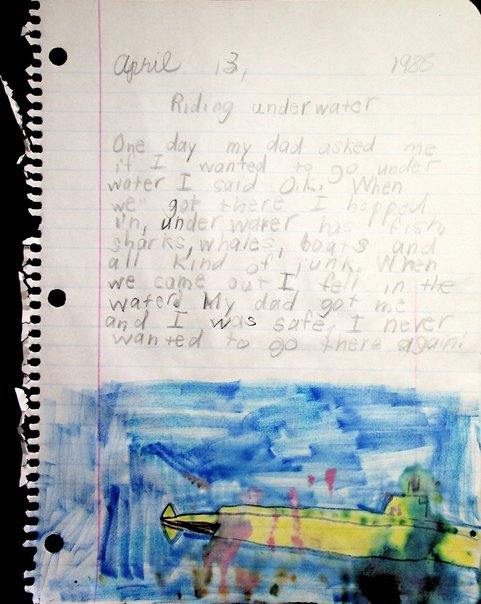 April 13, 1988
Riding underwater
One day my dad asked me
if I wanted to go under
water I said O.k. When
we got there I hopped
in, under water has fish,
sharks, whales, boats and
all kind of junk. When
we came out I fell in the
water. My dad got me
and I was safe, I never
wanted to go there again.